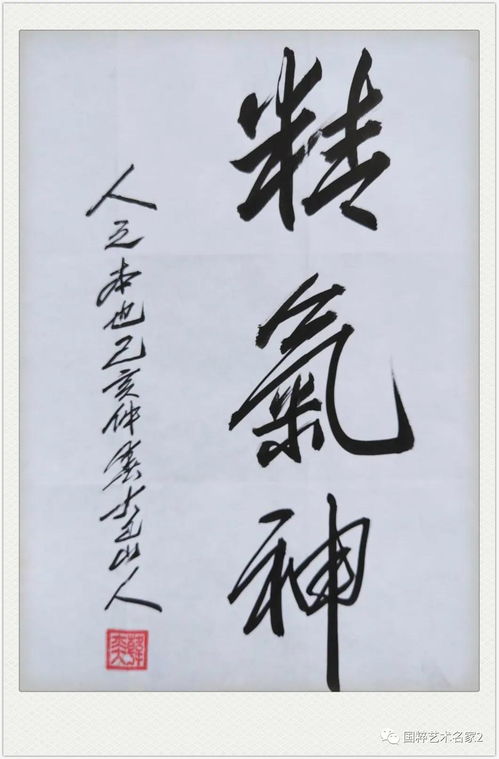 精氣神
人之本也己亥仲春 山人
国粹艺术名家2